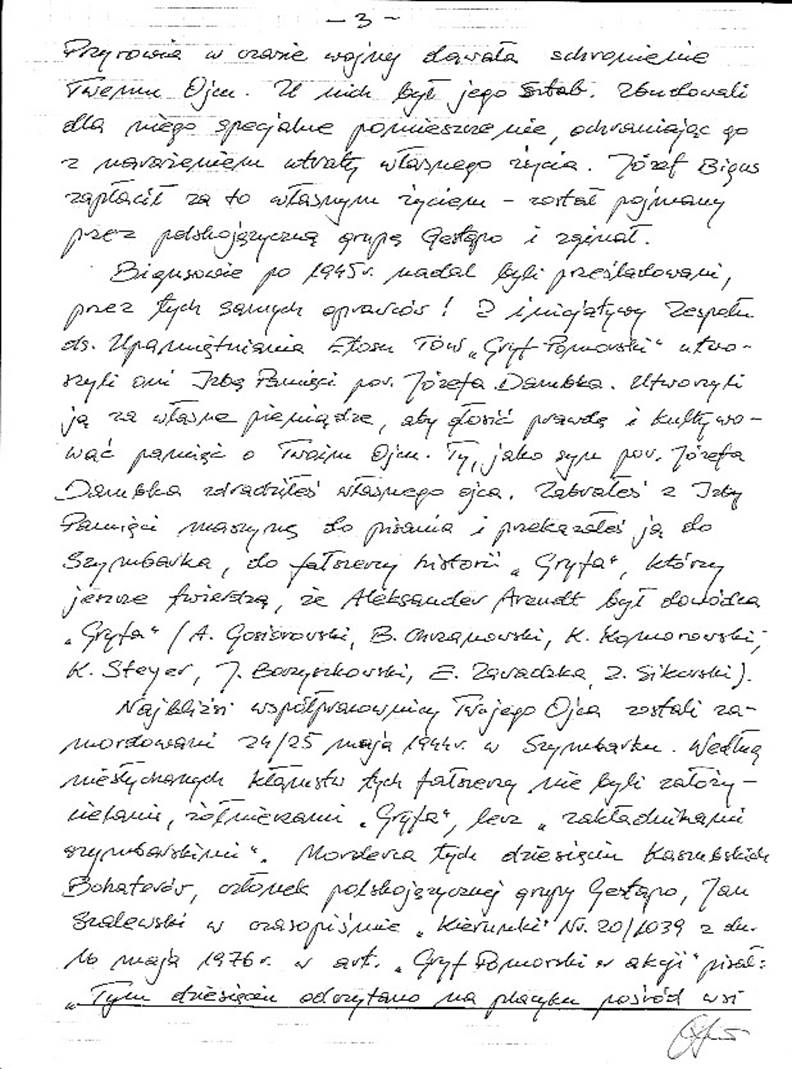 - 3 -
Przyrowia w czasie wojny dawała schronienie
Twemu Ojcu. U nich był jego sztab. Zbudowali
dla niego specjalne pomieszczenie, ochraniając go
z narażeniem utraty własnego życia. Józef Bigus
zapłacił za to własnym życiem – został pojmany
przez polskojęzyczną grupę Gestapo i zginął.
Bigusowie po 1945r. nadal byli prześladowani,
przez tych samych oprawców! Z inicjatywy Zespołu
ds. Upamiętniania Etosu TOW „Gryf Pomorski" utwo-
rzyli oni Izbę Pamięci por. Józefa Dambka. Utworzyli
ją za własne pieniądze, aby głosić prawdę i kultywo-
wać pamięć o Twoim Ojcu. Ty, jako syn por. Józefa
Dambka zdradziłeś własnego ojca. Zabrałeś z Izby
Pamięci maszynę do pisania i przekazałeś ją do
Szymbarka, do fałszerzy historii „Gryfa", którzy
jeszcze twierdzą, że Aleksander Arendt był dowódcą
„Gryfa" (A. Gąsiorowski, B. Chrzanowski, K. Komorowski,
K. Steyer, J. Borzyszkowski, E. Zawadzka, Z. Sikorski).
Najbliżsi współpracownicy Twojego Ojca zostali za-
mordowani 24/25 maja 1944r. w Szymbarku. Według
niesłychanych kłamstw tych fałszerzy nie byli założy-
cielami, żołnierzami „Gryfa", lecz „zakładnikami
szymbarskimi". Morderca tych dziesięciu Kaszubskich
Bohaterów, członek polskojęzycznej grupy Gestapo, Jan
Szalewski w czasopiśmie „Kierunki" Nr. 20/1039 z dn.
16 maja 1976r. w art. „Gryf Pomorski w akcji" pisał:
„Tym dziesięciu odczytano na placyku pośród wsi